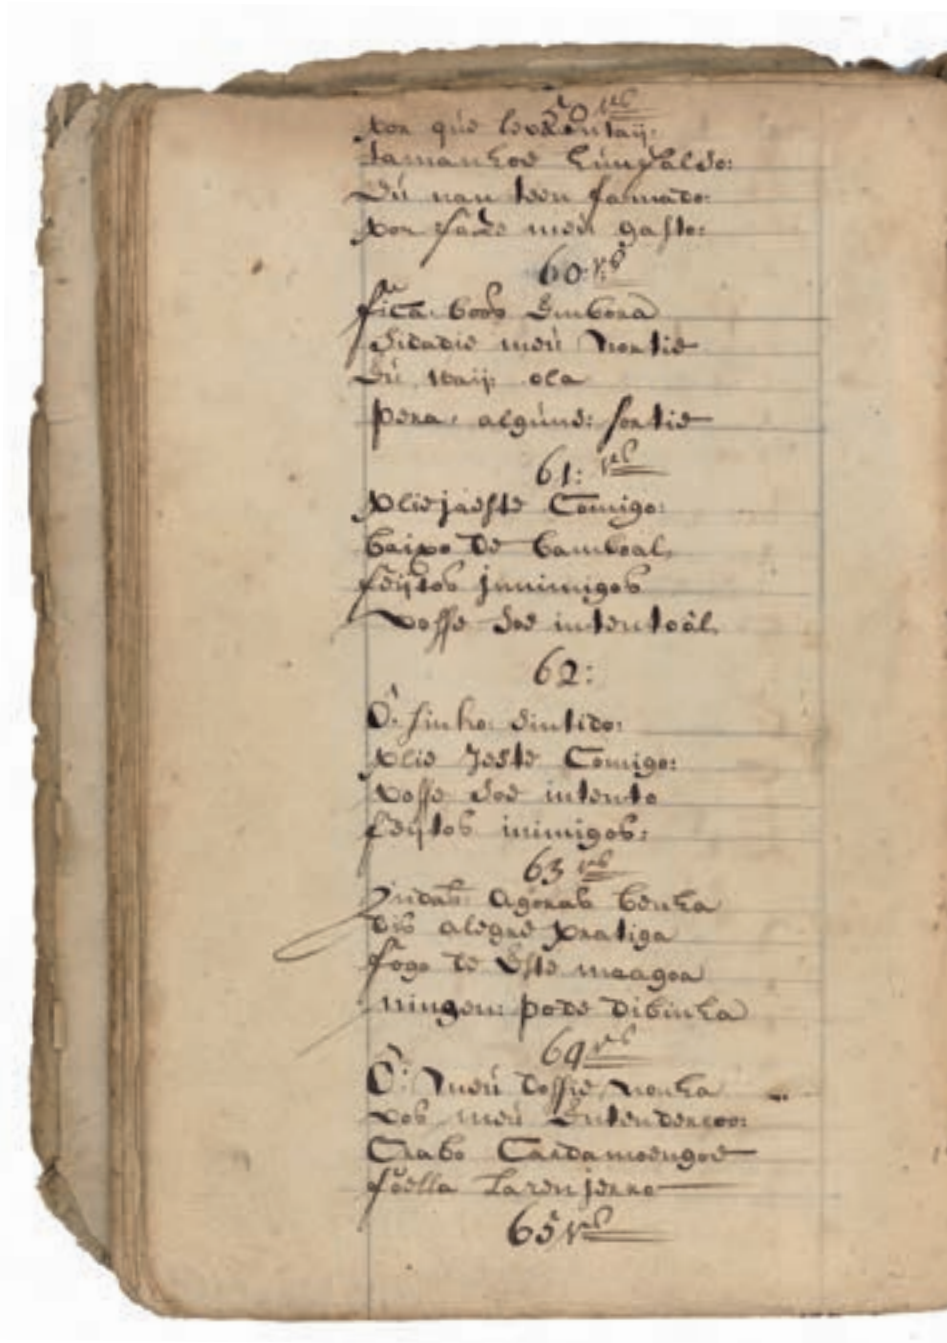 59 vs
por que
tamanhoe
Eu nan teen famado.
por faze meu gasto:
60: vs
fica boos Embora
Sidadie meu Nortie
Eu waij: ola
pera, algúne: sortie
61: vs
Comigo:
baixo de bamboal,
feijtos jnnimigos
Posse soe intentoàl,
62:
O: sinho: Sintido:
Plie Jeste Comigo:
Posse soe intento
feijtos inimigos:
63 vs
Jndas: Agoras benha
dis alegre pratiga
fogo de Este maagoa
ningem: pode dibinha
64 vs
O: Meu dossie, Nonha
Dos, meu Entendercoo:
Crabo Cardamoengoe
foella Larenjerro
65 vs